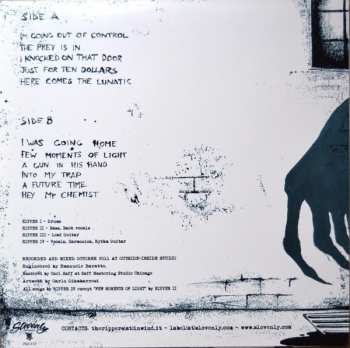 SIDE A
I'M GOING OUT OF CONTROL
THE PREY IS IN
I KNOCKED ON THAT DOOR
JUST FOR TEN DOLLARS
HERE COMES THE LUNATIC
SIDE B
I WAS GOING HOME
FEW MOMENTS OF LIGHT
A GUN IN HIS HAND
INTO MY TRAP
A FUTURE TIME
HEY MR CHEMIST
RIPPER I - Drums
RIPPER II - Bass, Back vocals
RIPPER III - Lead Guitar
RIPPER IV - Vocals, Harmonica, Rythm Guitar
RECORDED AND MIXED OCTOBER 2011 AT OUTSIDE-INSIDE STUDIO
Engineered by Nanuccio Baretto
Mastered by Carl Saff at Saff Mastering Studio Chicago
Artwork by
All songs by RIPPER IV except "FEW MOMENTS OF LIGHT" by RIPPER II
Slovenly
CONTACTS: - label@slovenly.com - www.slovenly.com